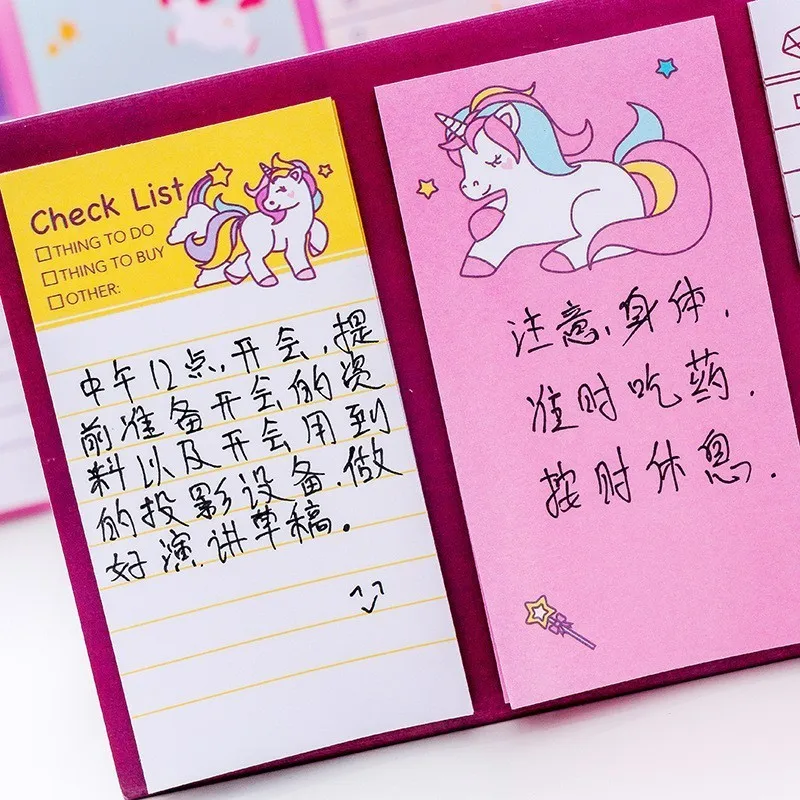 Check List
□THING TO DO
□THING TO BUY
□OTHER:
中午12点,开会,提
前准备开会的资
料以及开会用到
的投影设备.做
好演讲草稿。
注意,身体,
准时吃药.
按时休息.